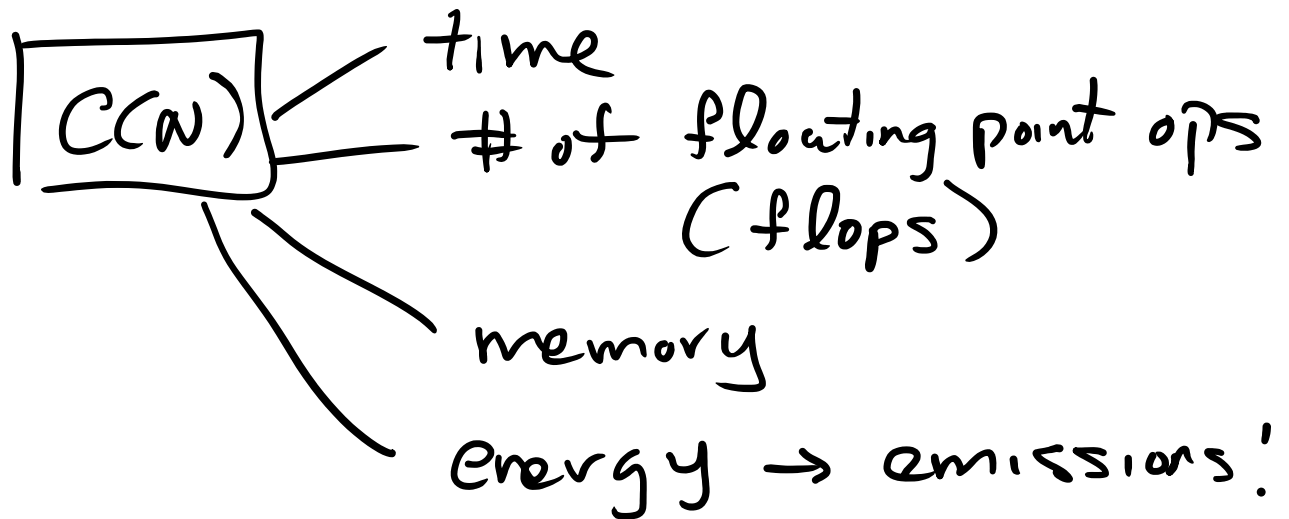 C(N)
time
# of floating point ops
(flops)
memory
energy → emissions!